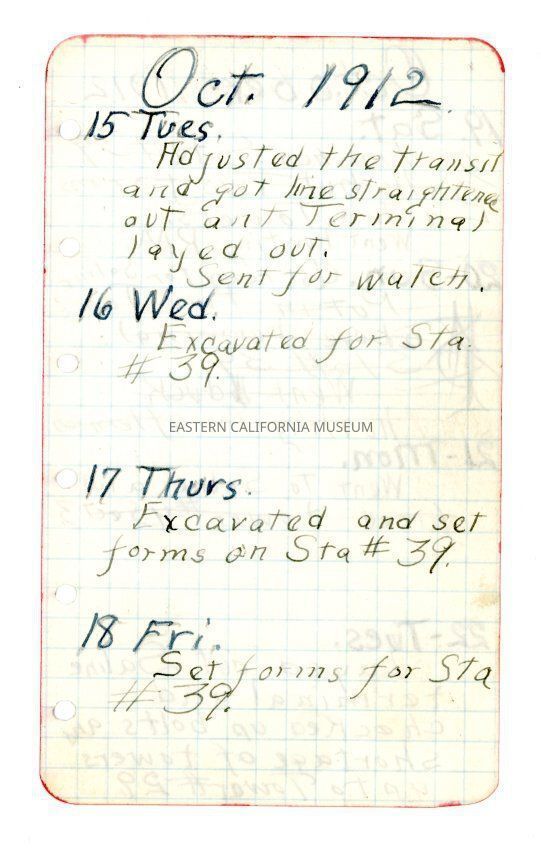 Oct. 1912.
15 Tues.
Adjusted the transit
and got line straightened
out and Terminal
layed out.
Sent for watch.
16 Wed.
Excavated for Sta.
# 39.
EASTERN CALIFORNIA MUSEUM
17 Thurs.
Excavated and set
forms on Sta # 39.
18 Fri.
Set forms for Sta
# 39.